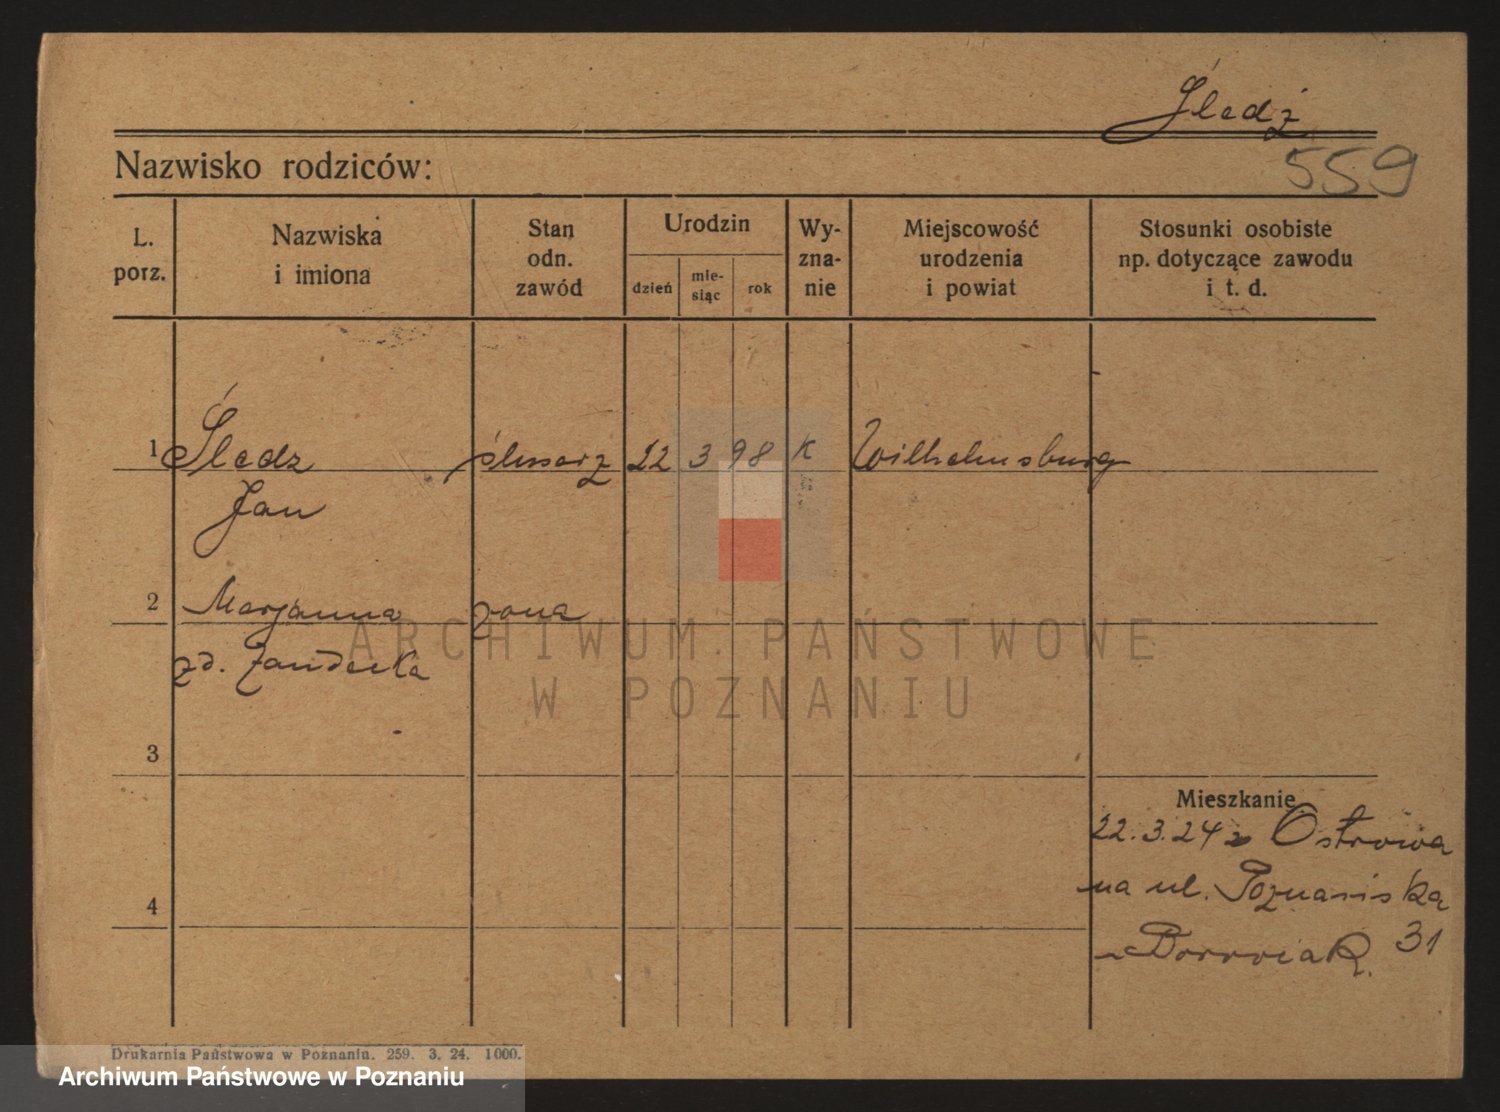 Śledź
559
Nazwisko rodziców:
L. porz.
Nazwiska i imiona
Stan odn. zawód
Urodzin
dzień
mie-
siąc
rok
Wy-
zna-
nie
Miejscowość urodzenia i powiat
Stosunki osobiste np. dotyczące zawodu i t. d.
1 Śledz ślusarz 22 3 98 K Wilhelmsburg
Jan
2 Marjanna żona
zd.
3
4
Mieszkanie
22.3.24 z Ostrowa
na ul. Poznańska
31
u Borowiak.
ARCHIWUM PAŃSTWOWE
W POZNANIU
Drukarnia Państwowa w Poznaniu. 259. 3. 24. 1000.
Archiwum Państwowe w Poznaniu